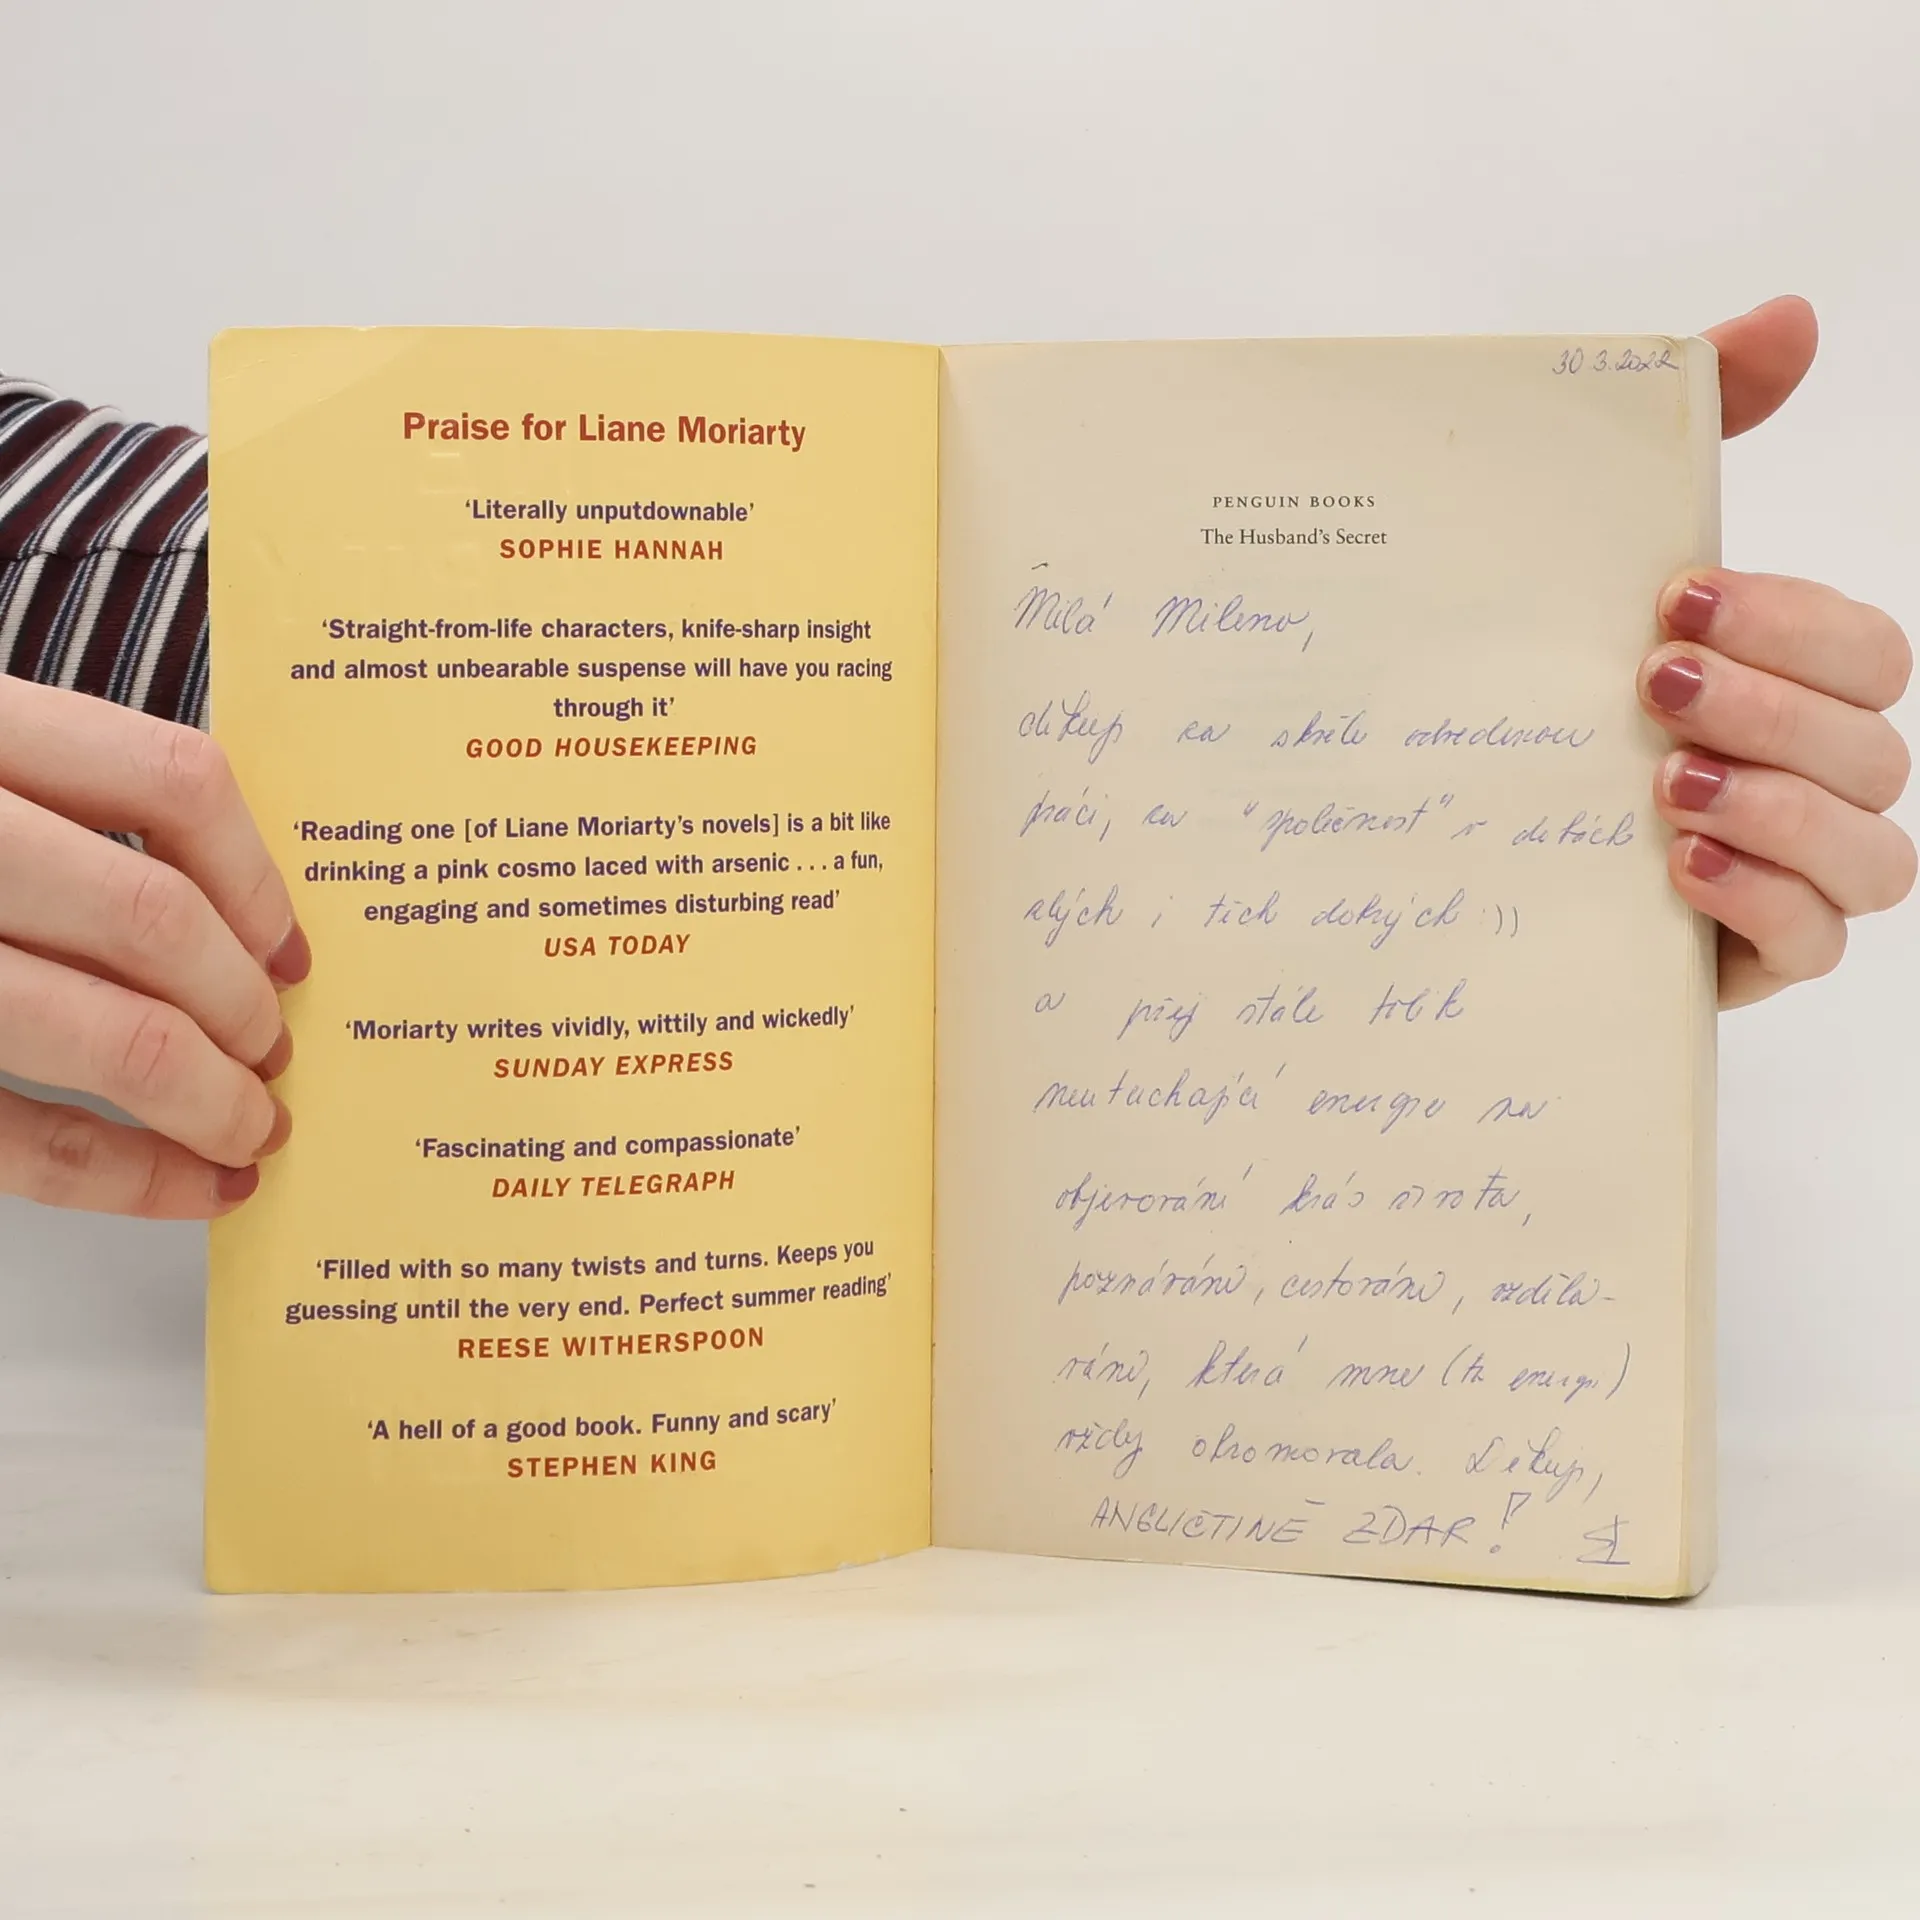 Praise for Liane Moriarty
‘Literally unputdownable’
SOPHIE HANNAH
‘Straight-from-life characters, knife-sharp insight
and almost unbearable suspense will have you racing
through it’
GOOD HOUSEKEEPING
‘Reading one [of Liane Moriarty’s novels] is a bit like
drinking a pink cosmo laced with arsenic . . . a fun,
engaging and sometimes disturbing read’
USA TODAY
‘Moriarty writes vividly, wittily and wickedly’
SUNDAY EXPRESS
‘Fascinating and compassionate’
DAILY TELEGRAPH
‘Filled with so many twists and turns. Keeps you
guessing until the very end. Perfect summer reading’
REESE WITHERSPOON
‘A hell of a good book. Funny and scary’
STEPHEN KING
30.3.2022
PENGUIN BOOKS
The Husband’s Secret
Milá Mileno,
děkuji za skvěle odvedenou
práci, za "společnost" v dobách
zlých i těch dobrých :))
a přeji stále tolik
neutuchající energie na
objevování krás života,
poznávání, cestování, vzdělá-
vání, která mne (ta energie)
vždy ohromovala. Děkuji,
ANGLIČTINĚ ZDAR!